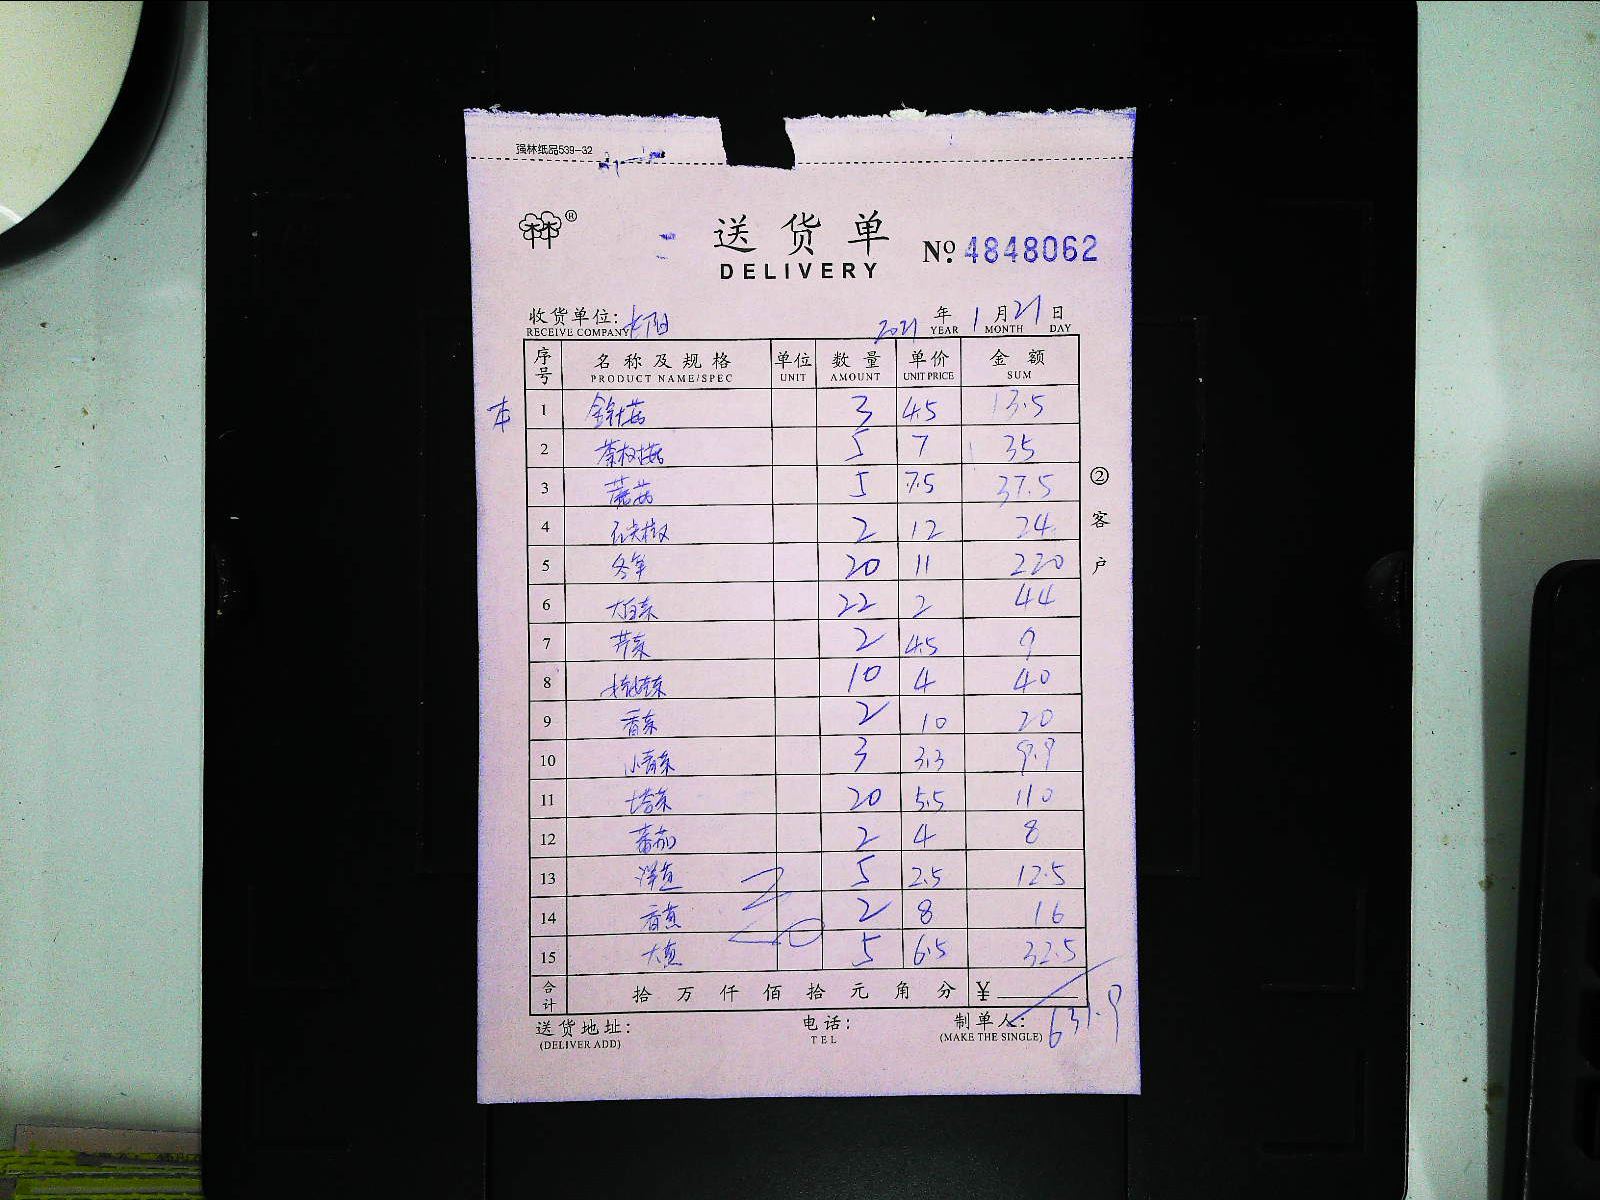 强林纸品539-32
®
送货单
DELIVERY
Nº. 4848062
收货单位: 长阳
RECEIVE COMPANY
2021 年 1 月 21 日
YEAR MONTH DAY
序号 名称及规格 单位 数量 单价 金额
PRODUCT NAME/SPEC UNIT AMOUNT UNIT PRICE SUM
本
1 金针菇 3 4.5 13.5
2 茶树菇 5 7 35
3 蘑菇 5 7.5 37.5
4 尖椒 2 12 24
5 冬笋 20 11 220
6 大白菜 22 2 44
7 芹菜 2 4.5 9
8 菜 10 4 40
9 香菜 2 10 20
10 小青菜 3 3.3 9.9
11 塔菜 20 5.5 110
12 番茄 2 4 8
13 洋葱 5 2.5 12.5
14 香葱 2 8 16
15 大葱 5 6.5 32.5
合计 拾万仟佰拾元角分 ¥
631.9
②客户
送货地址:
(DELIVER ADD)
电话:
TEL
制单人:
(MAKE THE SINGLE)